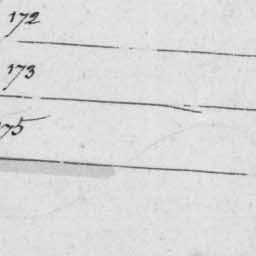 172
173
175